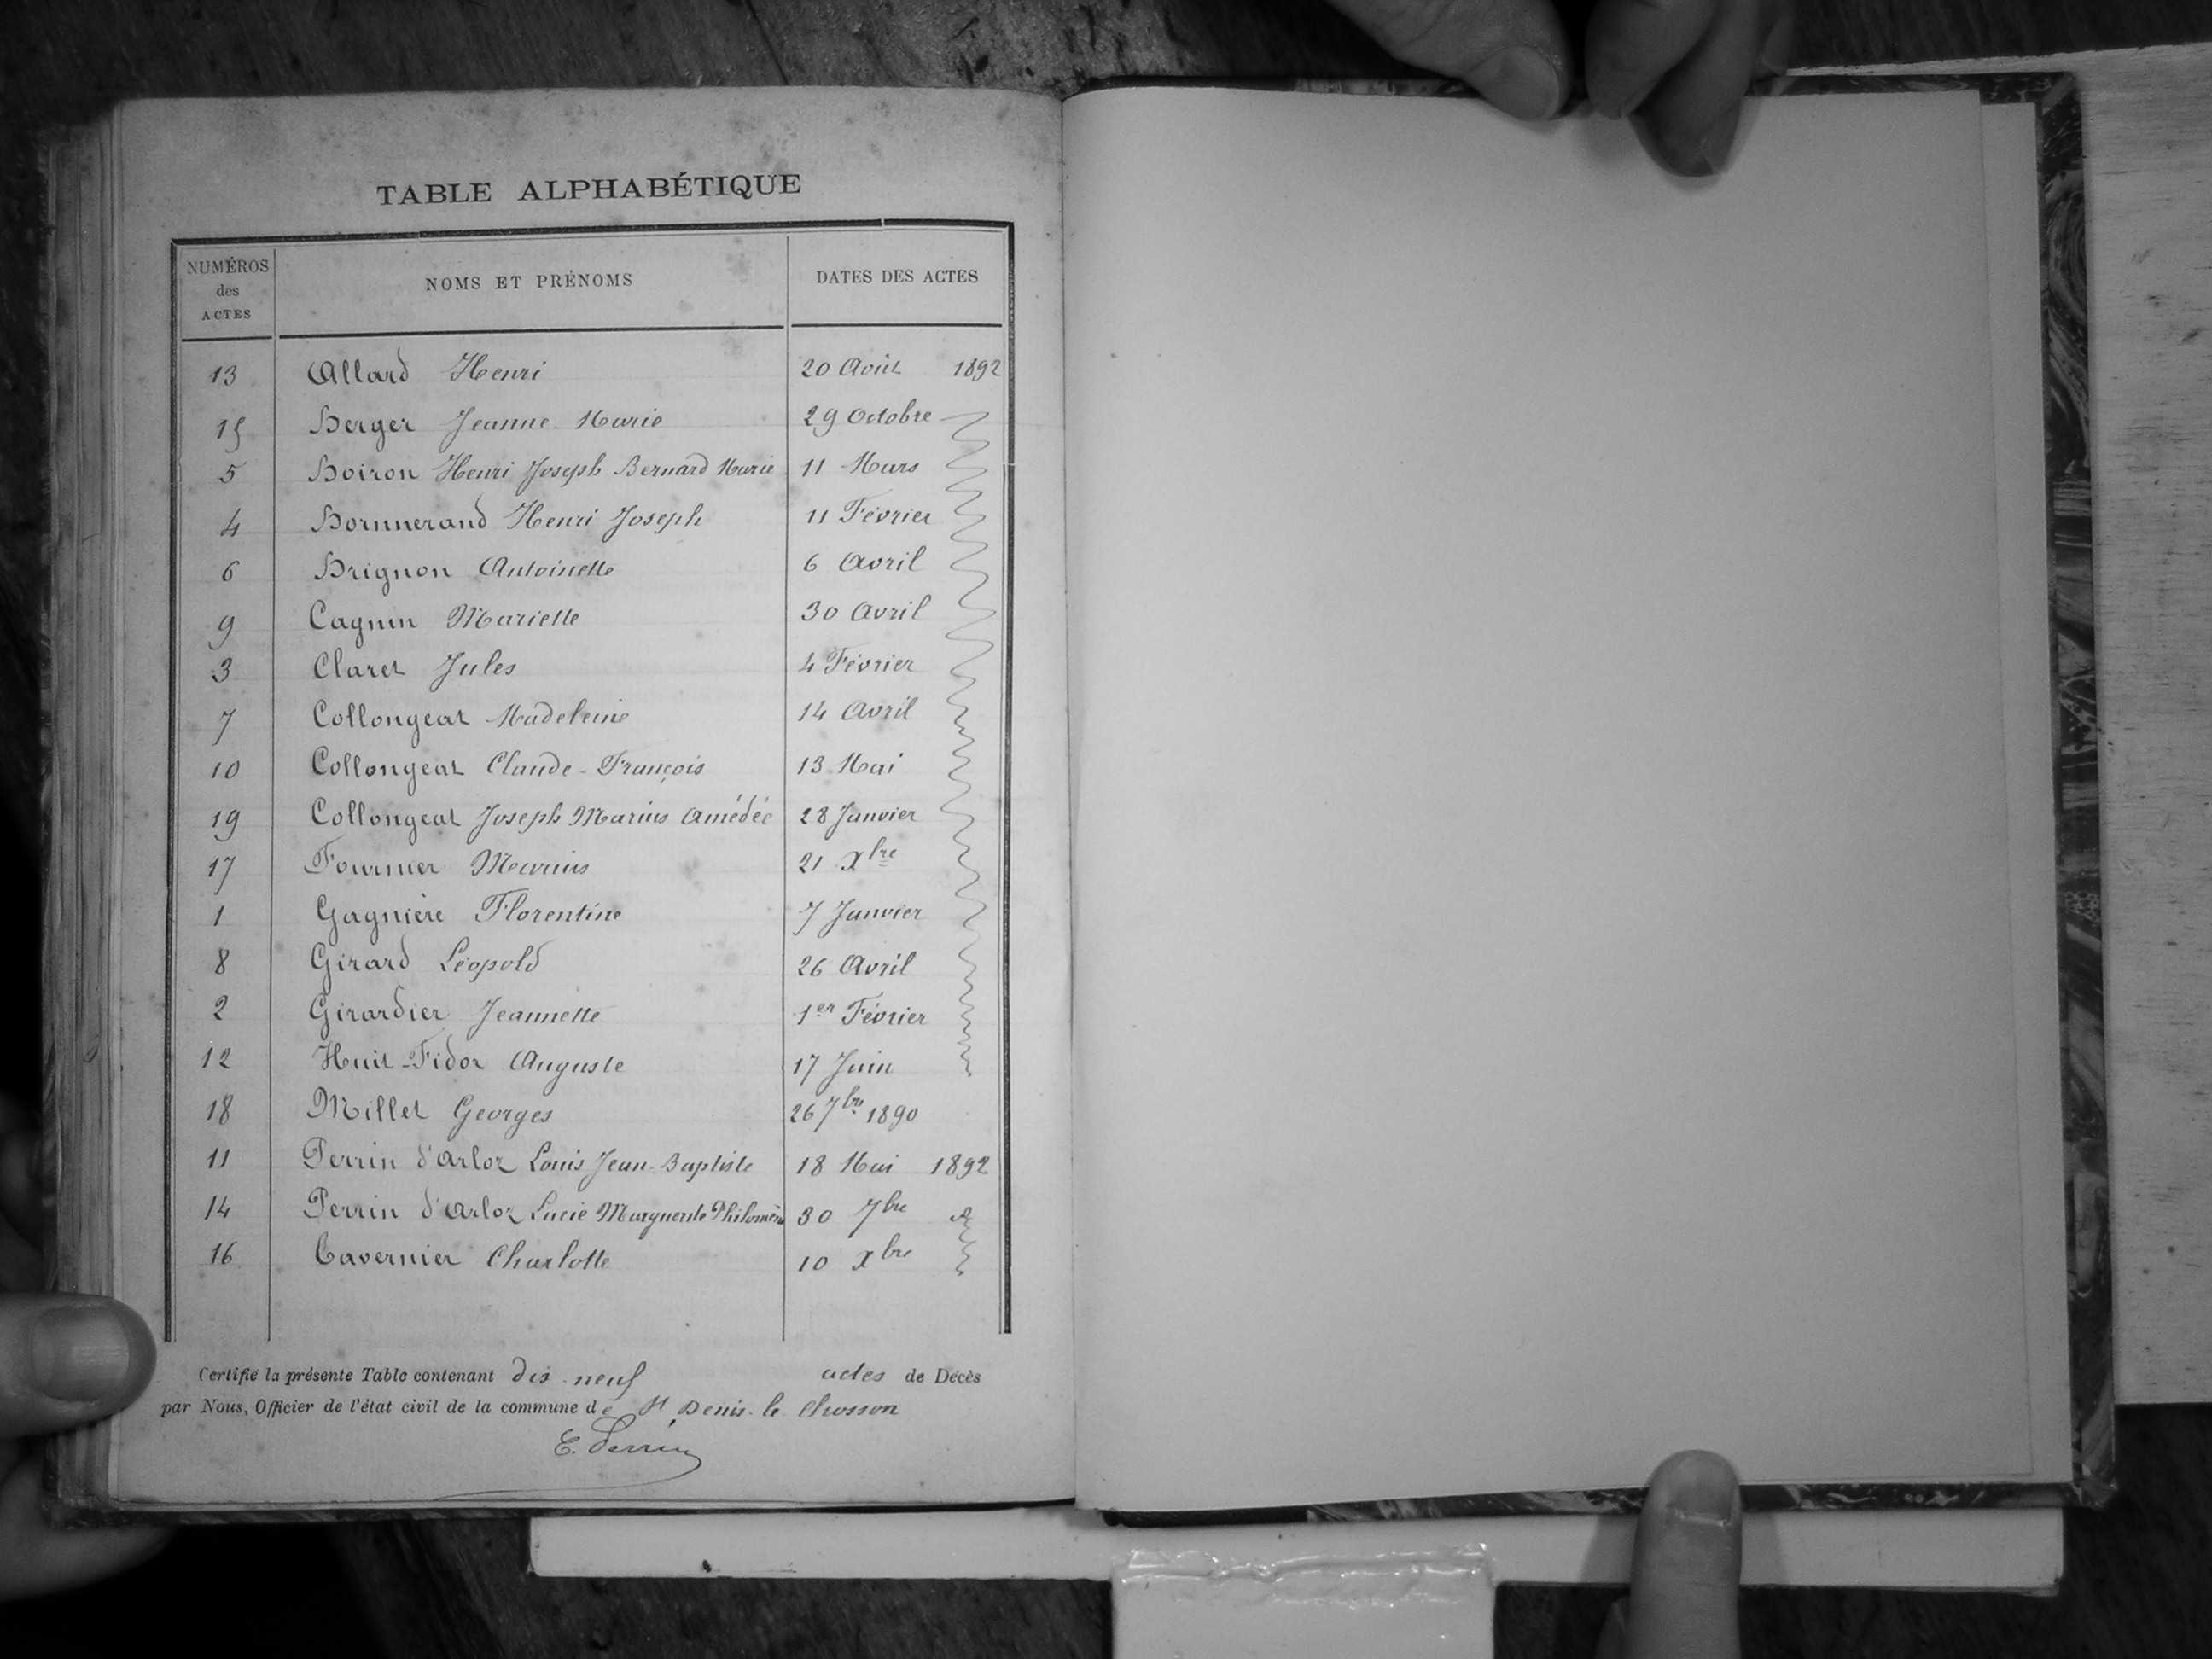 TABLE ALPHABÉTIQUE
NUMÉROS des ACTES NOMS ET PRÉNOMS DATES DES ACTES
13 Allard Henri 20 Août 1892
15 Berger Jeanne Marie 29 Octobre
5 Boiron Henri Joseph Bernard Marie 11 Mars
4 Bornnerand Henri Joseph 11 Février
6 Brignon Antoinette 6 Avril
9 Cagnin Mariette 30 Avril
3 Claret Jules 4 Février
7 Collongeat Madeleine 14 Avril
10 Collongeat Claude-François 13 Mai
19 Collongeat Joseph Marius Amédée 28 Janvier
17 Fournier Marius 21 Xbre
1 Gagnière Florentine 7 Janvier
8 Girard Léopold 26 Avril
2 Girardier Jeannette 1er Février
12 Huit-Fidor Auguste 17 Juin
18 Millet Georges 26 7bre 1890
11 Perrin d'Arloz Louis Jean-Baptiste 18 Mai 1892
14 Perrin d'Arloz Lucie Marguerite Philomène 30 7bre
16 Tavernier Charlotte 10 Xbre
Certifié la présente Table contenant dix neuf actes de Décès
par Nous, Officier de l'état civil de la commune de St Denis-le Chosson
E. Perrin